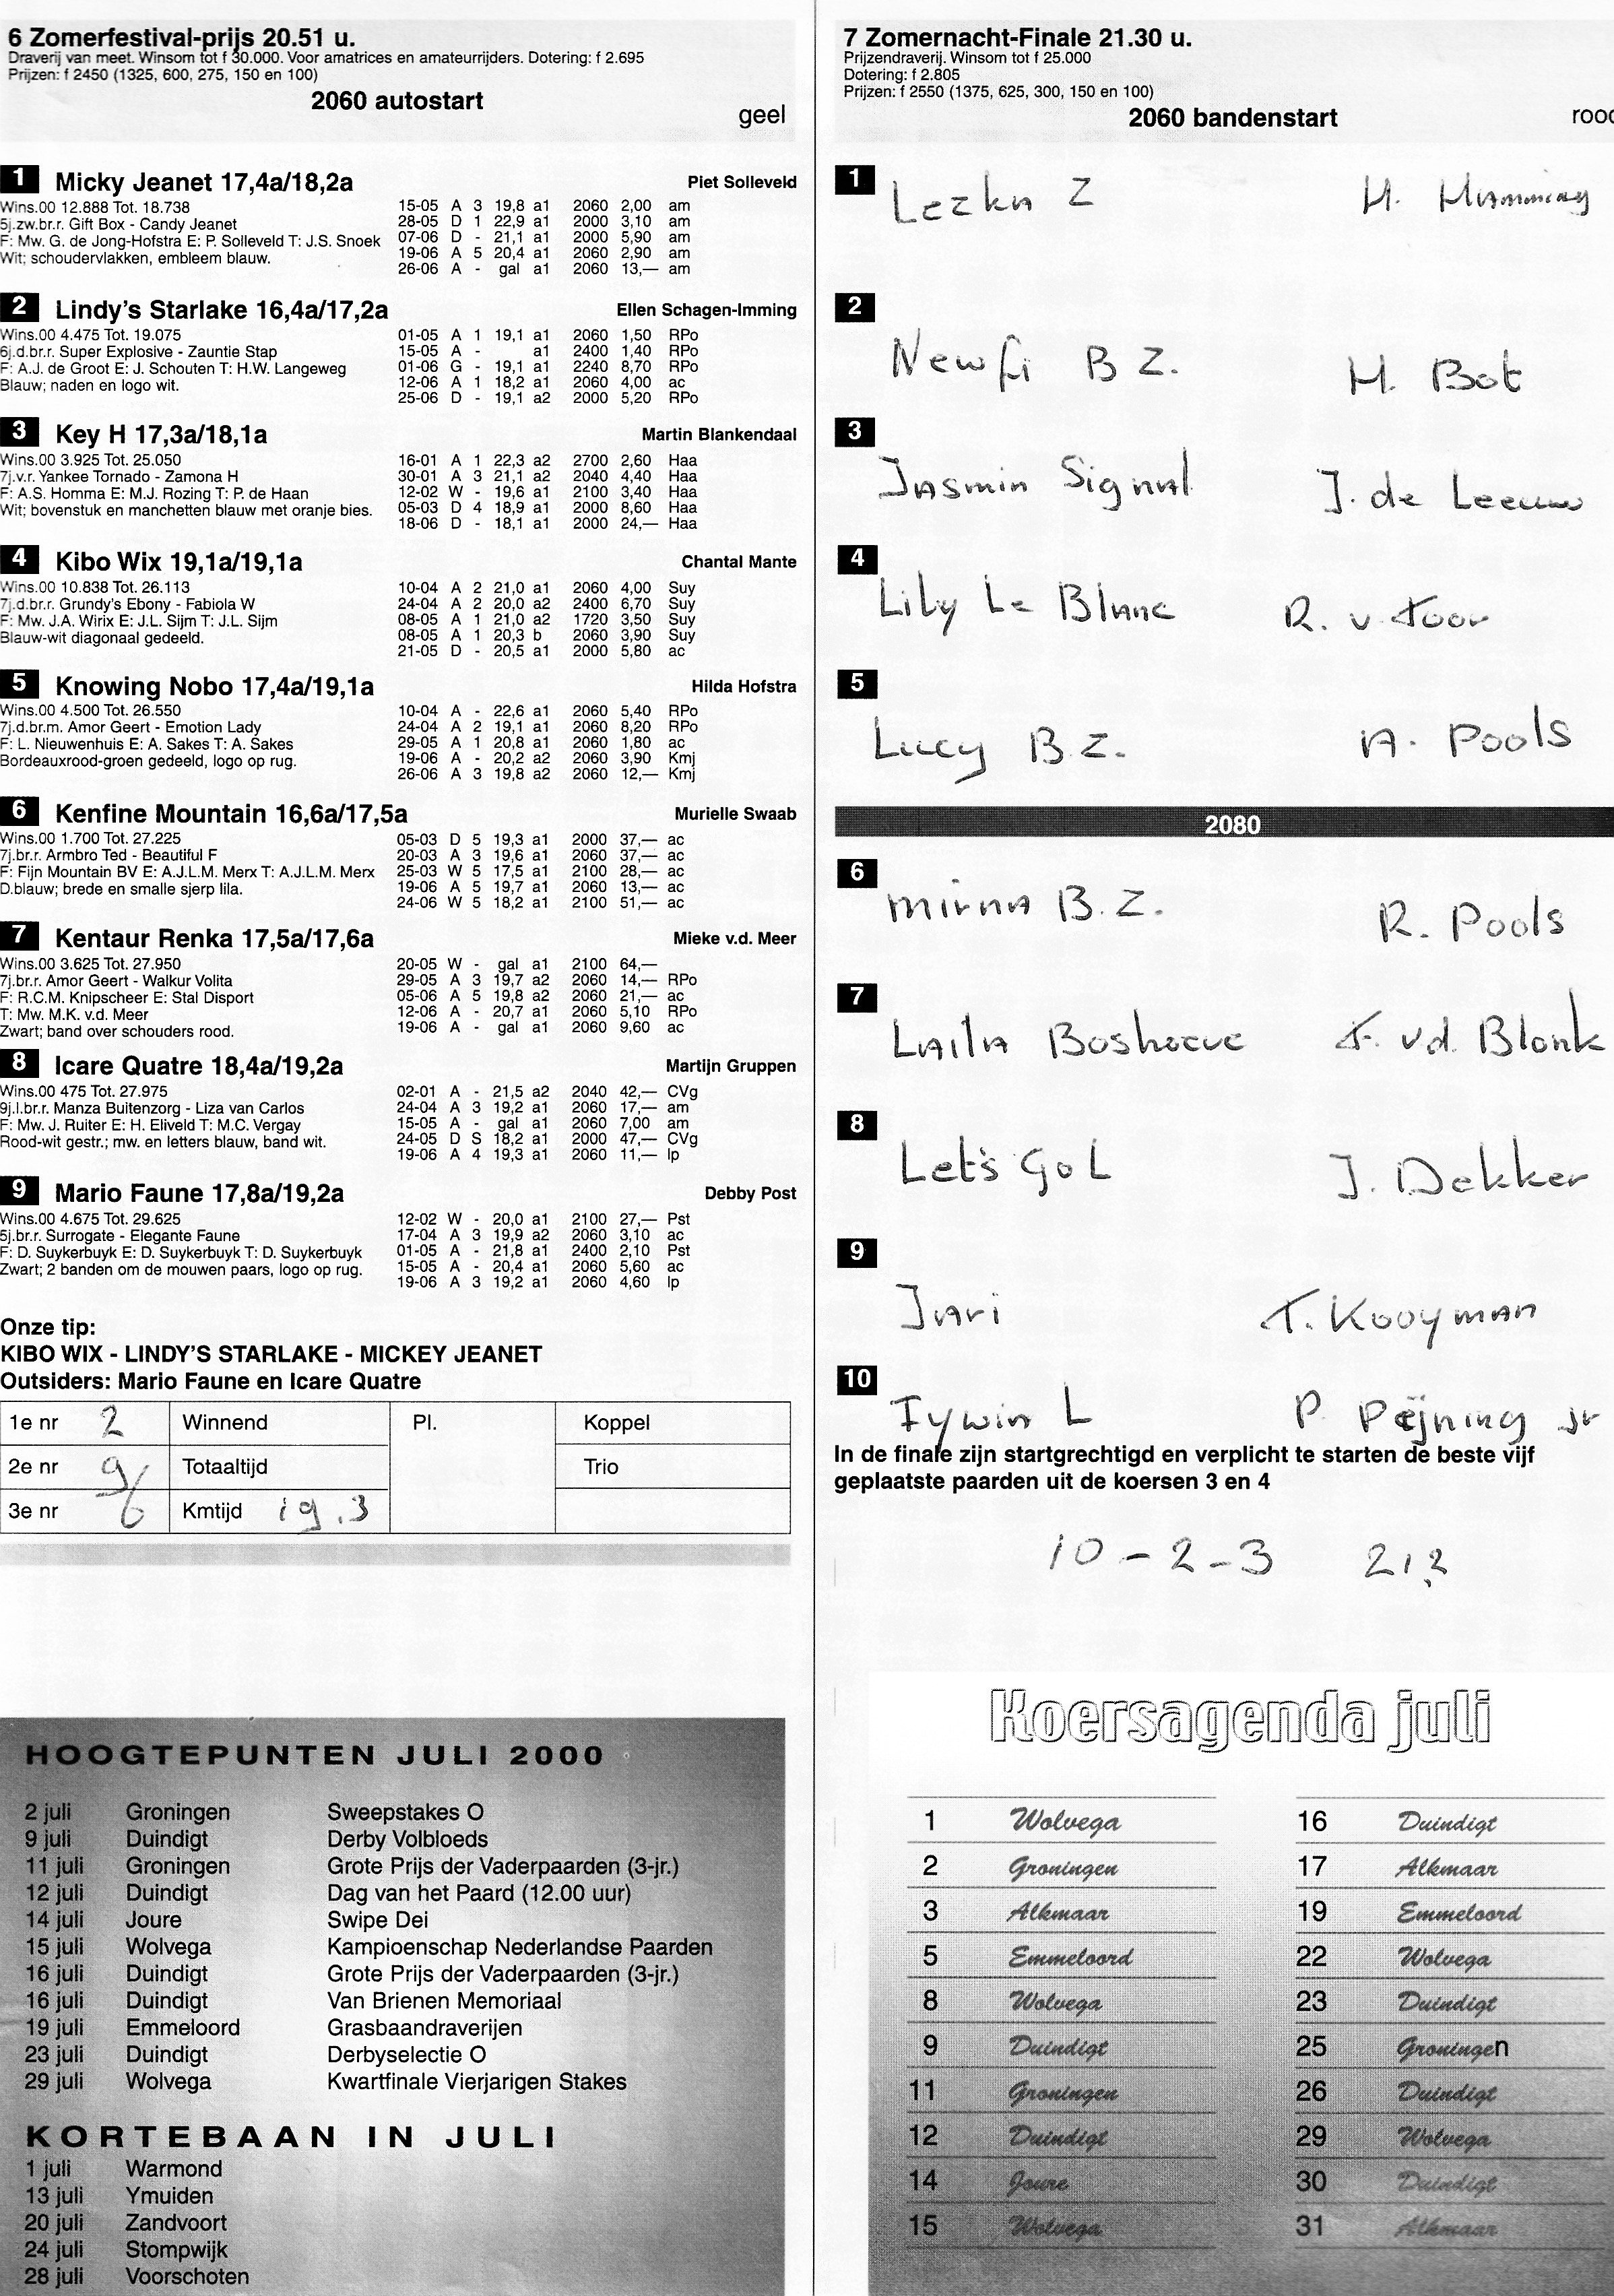 6 Zomerfestival-prijs 20.51 u.
Draverij van meet. Winsom tot f 30.000. Voor amatrices en amateurrijders. Dotering: f 2.695
Prijzen: f 2450 (1325, 600, 275, 150 en 100)
2060 autostart
geel
1 Micky Jeanet 17,4a/18,2a Piet Solleveld
Wins.00 12.888 Tot. 18.738 15-05 A 3 19,8 a1 2060 2,00 am
5j.zw.br.r. Gift Box - Candy Jeanet 28-05 D 1 22,9 a1 2000 3,10 am
F: Mw. G. de Jong-Hofstra E: P. Solleveld T: J.S. Snoek 07-06 D - 21,1 a1 2000 5,90 am
Wit; schoudervlakken, embleem blauw. 19-06 A 5 20,4 a1 2060 2,90 am
26-06 A - gal a1 2060 13,— am
2 Lindy's Starlake 16,4a/17,2a Ellen Schagen-Imming
Wins.00 4.475 Tot. 19.075 01-05 A 1 19,1 a1 2060 1,50 RPo
6j.d.br.r. Super Explosive - Zauntie Stap 15-05 A - a1 2400 1,40 RPo
F: A.J. de Groot E: J. Schouten T: H.W. Langeweg 01-06 G - 19,1 a1 2240 8,70 RPo
Blauw; naden en logo wit. 12-06 A 1 18,2 a1 2060 4,00 ac
25-06 D - 19,1 a2 2000 5,20 RPo
3 Key H 17,3a/18,1a Martin Blankendaal
Wins.00 3.925 Tot. 25.050 16-01 A 1 22,3 a2 2700 2,60 Haa
7j.v.r. Yankee Tornado - Zamona H 30-01 A 3 21,1 a2 2040 4,40 Haa
F: A.S. Homma E: M.J. Rozing T: P. de Haan 12-02 W - 19,6 a1 2100 3,40 Haa
Wit; bovenstuk en manchetten blauw met oranje bies. 05-03 D 4 18,9 a1 2000 8,60 Haa
18-06 D - 18,1 a1 2000 24,— Haa
4 Kibo Wix 19,1a/19,1a Chantal Mante
Wins.00 10.838 Tot. 26.113 10-04 A 2 21,0 a1 2060 4,00 Suy
7j.d.br.r. Grundy's Ebony - Fabiola W 24-04 A 2 20,0 a2 2400 6,70 Suy
F: Mw. J.A. Wirix E: J.L. Sijm T: J.L. Sijm 08-05 A 1 21,0 a2 1720 3,50 Suy
Blauw-wit diagonaal gedeeld. 08-05 A 1 20,3 b 2060 3,90 Suy
21-05 D - 20,5 a1 2000 5,80 ac
5 Knowing Nobo 17,4a/19,1a Hilda Hofstra
Wins.00 4.500 Tot. 26.550 10-04 A - 22,6 a1 2060 5,40 RPo
7j.d.br.m. Amor Geert - Emotion Lady 24-04 A 2 19,1 a1 2060 8,20 RPo
F: L. Nieuwenhuis E: A. Sakes T: A. Sakes 29-05 A 1 20,8 a1 2060 1,80 ac
Bordeauxrood-groen gedeeld, logo op rug. 19-06 A - 20,2 a2 2060 3,90 Kmj
26-06 A 3 19,8 a2 2060 12,— Kmj
6 Kenfine Mountain 16,6a/17,5a Murielle Swaab
Wins.00 1.700 Tot. 27.225 05-03 D 5 19,3 a1 2000 37,— ac
7j.br.r. Armbro Ted - Beautiful F 20-03 A 3 19,6 a1 2060 37,— ac
F: Fijn Mountain BV E: A.J.L.M. Merx T: A.J.L.M. Merx 25-03 W 5 17,5 a1 2100 28,— ac
D.blauw; brede en smalle sjerp lila. 19-06 A 5 19,7 a1 2060 13,— ac
24-06 W 5 18,2 a1 2100 51,— ac
7 Kentaur Renka 17,5a/17,6a Mieke v.d. Meer
Wins.00 3.625 Tot. 27.950 20-05 W - gal a1 2100 64,—
7j.br.r. Amor Geert - Walkur Volita 29-05 A 3 19,7 a2 2060 14,— RPo
F: R.C.M. Knipscheer E: Stal Disport 05-06 A 5 19,8 a2 2060 21,— ac
T: Mw. M.K. v.d. Meer 12-06 A - 20,7 a1 2060 5,10 RPo
Zwart; band over schouders rood. 19-06 A - gal a1 2060 9,60 ac
8 Icare Quatre 18,4a/19,2a Martijn Gruppen
Wins.00 475 Tot. 27.975 02-01 A - 21,5 a2 2040 42,— CVg
9j.l.br.r. Manza Buitenzorg - Liza van Carlos 24-04 A 3 19,2 a1 2060 17,— am
F: Mw. J. Ruiter E: H. Eliveld T: M.C. Vergay 15-05 A - gal a1 2060 7,00 am
Rood-wit gestr.; mw. en letters blauw, band wit. 24-05 D S 18,2 a1 2000 47,— CVg
19-06 A 4 19,3 a1 2060 11,— lp
9 Mario Faune 17,8a/19,2a Debby Post
Wins.00 4.675 Tot. 29.625 12-02 W - 20,0 a1 2100 27,— Pst
5j.br.r. Surrogate - Elegante Faune 17-04 A 3 19,9 a2 2060 3,10 ac
F: D. Suykerbuyk E: D. Suykerbuyk T: D. Suykerbuyk 01-05 A - 21,8 a1 2400 2,10 Pst
Zwart; 2 banden om de mouwen paars, logo op rug. 15-05 A - 20,4 a1 2060 5,60 ac
19-06 A 3 19,2 a1 2060 4,60 lp
Onze tip:
KIBO WIX - LINDY'S STARLAKE - MICKEY JEANET
Outsiders: Mario Faune en Icare Quatre
1e nr 2 Winnend Pl. Koppel
2e nr 9 Totaaltijd Trio
3e nr 6 Kmtijd 19.3
HOOGTEPUNTEN JULI 2000
2 juli Groningen Sweepstakes O
9 juli Duindigt Derby Volbloeds
11 juli Groningen Grote Prijs der Vaderpaarden (3-jr.)
12 juli Duindigt Dag van het Paard (12.00 uur)
14 juli Joure Swipe Dei
15 juli Wolvega Kampioenschap Nederlandse Paarden
16 juli Duindigt Grote Prijs der Vaderpaarden (3-jr.)
16 juli Duindigt Van Brienen Memoriaal
19 juli Emmeloord Grasbaandraverijen
23 juli Duindigt Derbyselectie O
29 juli Wolvega Kwartfinale Vierjarigen Stakes
KORTEBAAN IN JULI
1 juli Warmond
13 juli Ymuiden
20 juli Zandvoort
24 juli Stompwijk
28 juli Voorschoten
7 Zomernacht-Finale 21.30 u.
Prijzendraverij. Winsom tot f 25.000
Dotering: f 2.805
Prijzen: f 2550 (1375, 625, 300, 150 en 100)
2060 bandenstart
rood
1 Lezka Z H. Hamming
2 Newfi B Z. H. Bot
3 Jasmin Signal J. de Leeuw
4 Lily Le Blanc R. v. Toor
5 Lucy B.Z. A. Pools
2080
6 Mirna B.Z. R. Pools
7 Laila Boshoeve F. vd. Blonk
8 Let's Go L J. Dekker
9 Jari T. Kooyman
10 Iywin L P. Peijning jr
In de finale zijn startgerechtigd en verplicht te starten de beste vijf
geplaatste paarden uit de koersen 3 en 4
10 - 2 - 3
Koersagenda juli
1 Wolvega 16 Duindigt
2 Groningen 17 Alkmaar
3 Alkmaar 19 Emmeloord
5 Emmeloord 22 Wolvega
8 Wolvega 23 Duindigt
9 Duindigt 25 Groningen
11 Groningen 26 Duindigt
12 Duindigt 29 Wolvega
14 Joure 30 Duindigt
15 Wolvega 31 Alkmaar